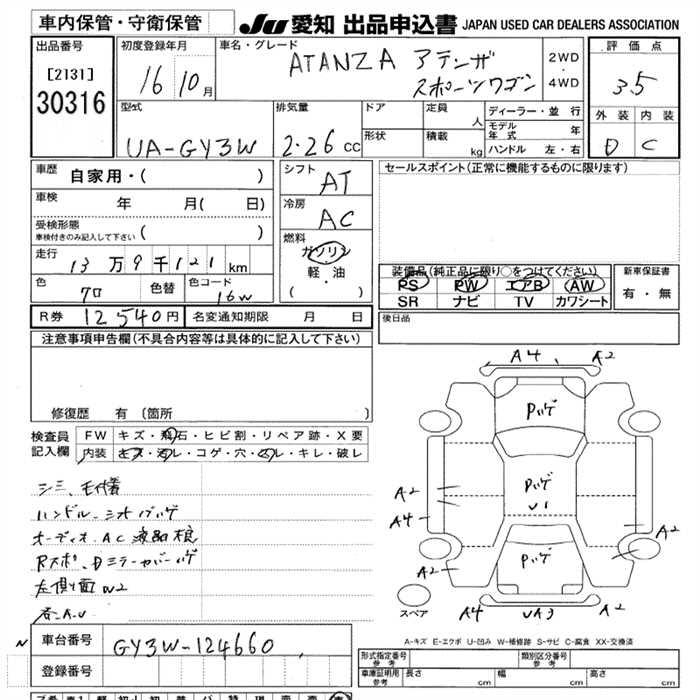 車内保管・守衛保管
JU 愛知 出品申込書 JAPAN USED CAR DEALERS ASSOCIATION
出品番号
[2131]
30316
初度登録年月
16 10月
車名・グレード
ATANZA アテンザ
スポーツワゴン
2WD
・
4WD
評価点
3.5
外装 内装
D C
型式
UA-GY3W
排気量
2.26 cc
ドア
形状
定員
人
積載
kg
ディーラー・並行
モデル
年式
年
ハンドル 左・右
車歴
自家用・( )
車検
年 月( 日)
受検形態
車検付きのみ記入して下さい ( )
走行
13万9千121km
色
クロ
色替
色コード
16W
シフト
AT
冷房
AC
燃料
ガソリン
・
軽・油
( )
セールスポイント(正常に機能するものに限ります)
装備品(純正品に限り○をつけてください)
PS PW エアB AW
SR ナビ TV カワシート
新車保証書
有・無
R券 12540円
名変通知期限 月 日
後日品
注意事項申告欄(不具合内容等は具体的に記入して下さい)
修復歴 有(箇所 )
検査員
記入欄
FW キズ・飛石・ヒビ割・リペア跡・X要
内装 キズ・汚レ・コゲ・穴・スレ・キレ・破レ
シミ、毛付着
オーディオ、AC液晶
左側面W2
A4 A2
Pハゲ
Pハゲ
U1
A2
A4
A2
A2
Pハゲ
A4 UA3 A2
スペア
A-キズ E-エクボ U-凹み W-補修跡 S-サビ C-腐食 XX-交換済
車台番号
GY3W-124660
登録番号
形式指定番号
参考
類別区分番号
参考
車庫証明用
参考
長さ cm 幅 cm 高さ cm